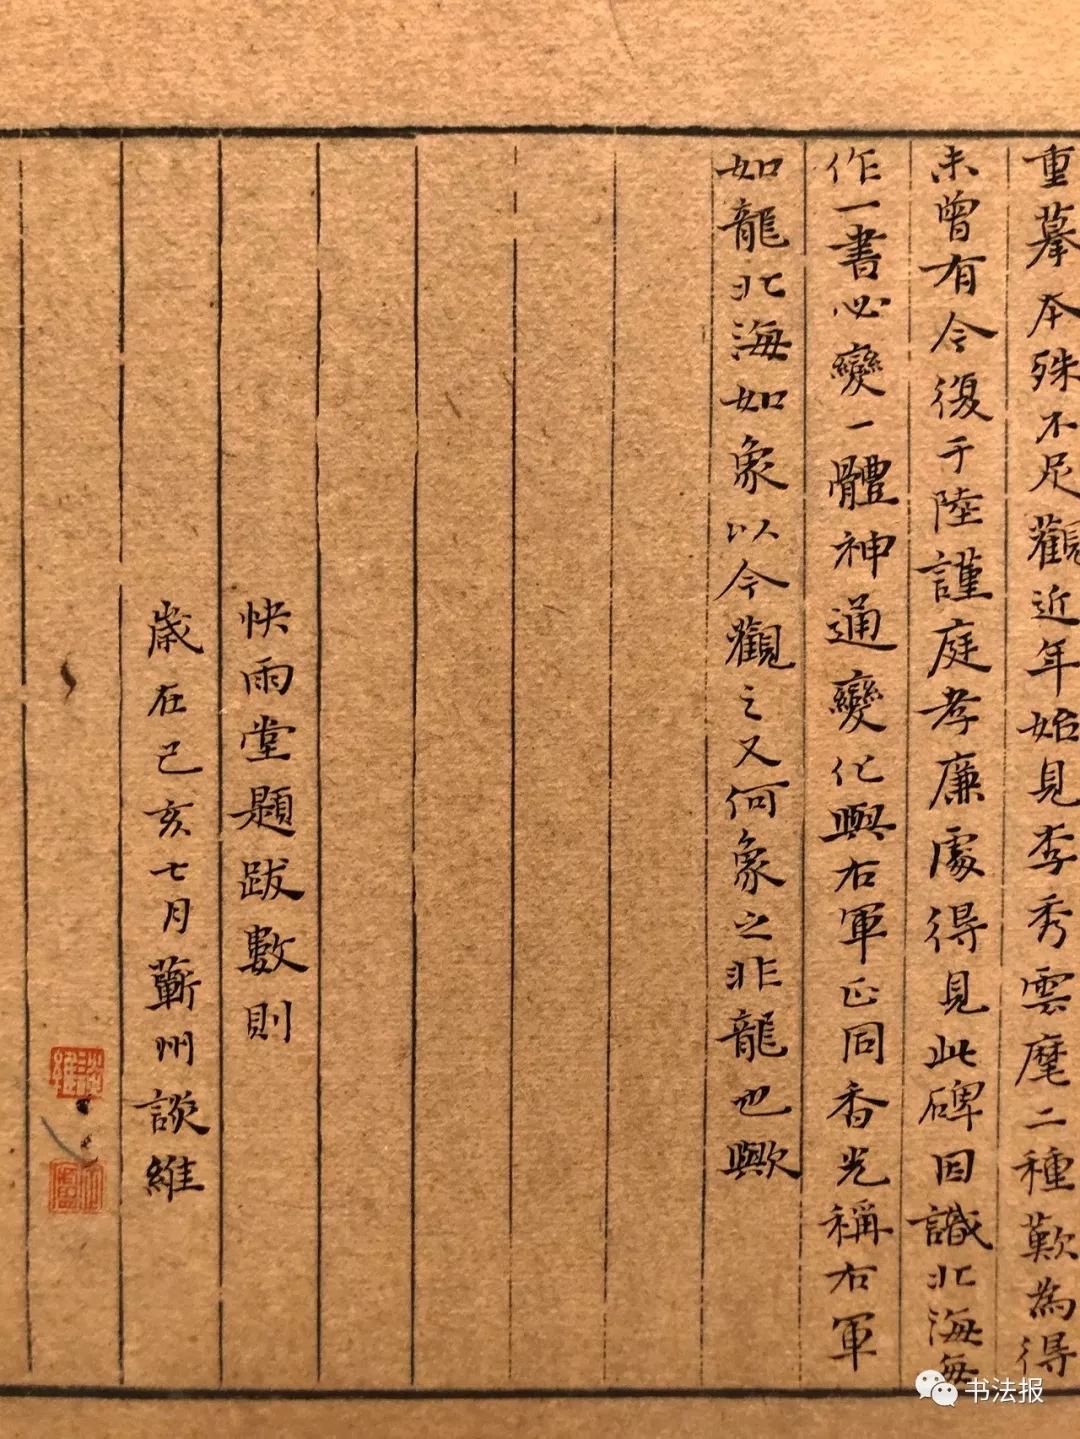 重摹本殊不足觀近年始見李秀雲麾二種歎為得
未曾有今復于陸謹庭孝廉處得見此碑因識北海每
作一書必變一體神通變化與右軍正同香光稱右軍
如龍北海如象以今觀之又何象之非龍也歟
快雨堂題跋數則
歲在己亥七月蘄州談維
談維
书法报